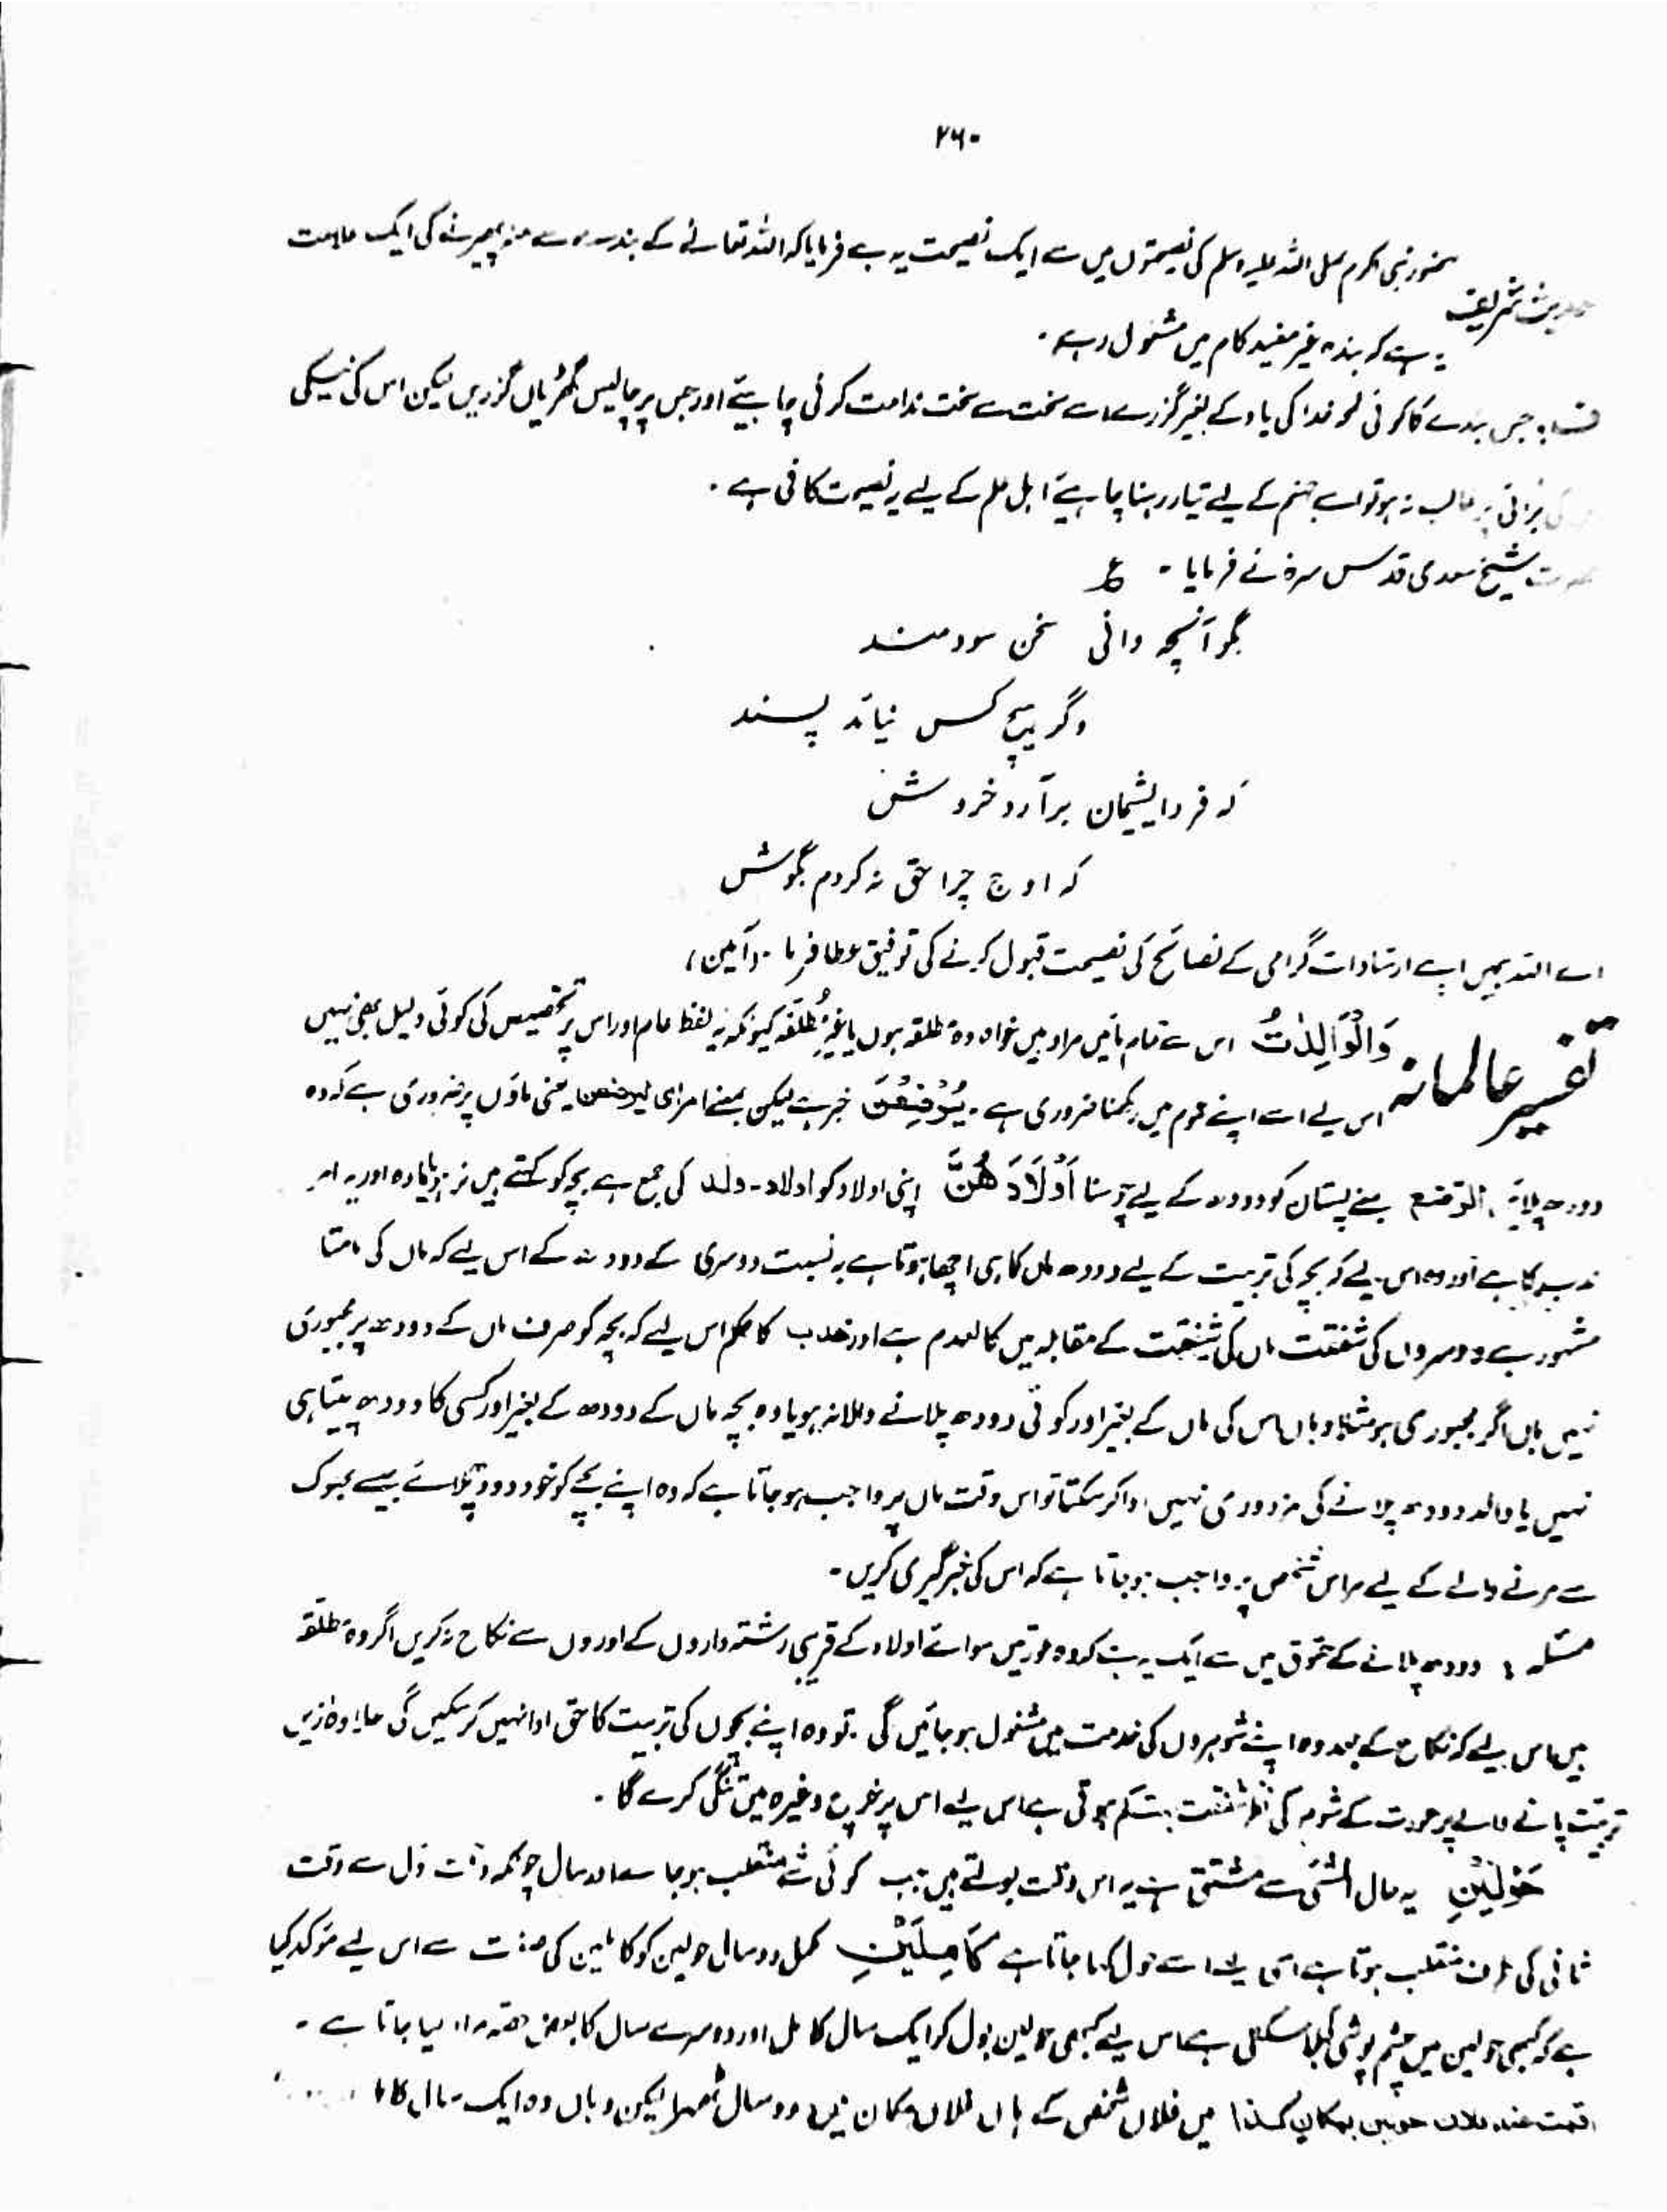 ۲۶۰
حضور نبی اکرم صلی اللہ علیہ وسلم کی نصیحتوں میں سے ایک نصیحت یہ ہے فرمایا کہ اللہ تعالےٰ کے بندے سے منہ پھیرنے کی ایک علامت
حدیث شریف
یہ ہے کہ بندہ غیر مفید کام میں مشغول رہے۔
ف: جس بندے کا کوئی لمحہ خدا کی یاد کے بغیر گزرے اسے سخت سے سخت ندامت کرنی چاہیئے اور جس پر چالیس گھڑیاں گزریں لیکن اس کی نیکی
کی برائی پر غالب نہ ہو تو اسے جہنم کے لیے تیار رہنا چاہیئے اہل علم کے لیے یہ نصیحت کافی ہے۔
حضرت شیخ سعدی قدس سرہ نے فرمایا۔ ؏
بگو آنچہ دانی سخن سودمند
وگر ہیچ کس نیاید پسند
کہ فردا پشیمان برآرد خروش
کہ اوخ چرا حق نہ کردم بگوش
اے اللہ ہمیں اپنے ارشادات گرامی کے نصائح کی نصیحت قبول کرنے کی توفیق عطا فرما۔ (آمین)
تفسیر عالمانہ وَالْوَالِدٰتُ اس سے تمام مائیں مراد ہیں خواہ وہ مطلقہ ہوں یا غیر مطلقہ کیونکہ یہ لفظ عام اور اس پر تخصیص کی کوئی دلیل بھی نہیں
اس لیے اسے اپنے عموم میں رکھنا ضروری ہے۔ یُرْضِعْنَ خبر ہے لیکن بمعنے امر ای لیرضعن یعنی ماؤں پر ضروری ہے کہ وہ
دودھ پلائیں، الرضع بمعنے پستان کو دودھ کے لیے چوسنا اَوْلَادَھُنَّ اپنی اولاد کو اولاد۔ ولد کی جمع ہے بچہ کو کہتے ہیں نر ہو یا مادہ اور یہ امر
ندب کا ہے اور وہ اس لیے کہ بچہ کی تربیت کے لیے دودھ ماں کا ہی اچھا ہوتا ہے بہ نسبت دوسری کے دودھ کے اس لیے کہ ماں کی مامتا
مشہور ہے دوسروں کی شفقت ماں کی شفقت کے مقابلہ میں کالعدم ہے اور ندب کا حکم اس لیے کہ بچہ کو صرف ماں کے دودھ پر مجبوری
نہیں ہاں اگر مجبوری ہو مثلاً وہاں اس کی ماں کے بغیر اور کوئی دودھ پلانے والا نہ ہو یا وہ بچہ ماں کے دودھ کے بغیر اور کسی کا دودھ پیتا ہی
نہیں یا والد دودھ پلانے کی مزدوری نہیں ادا کر سکتا تو اس وقت ماں پر واجب ہو جاتا ہے کہ وہ اپنے بچے کو خود دودھ پلائے جیسے بھوک
سے مرنے والے کے لیے ہر اس شخص پر واجب ہو جاتا ہے کہ اس کی خبر گیری کریں۔
مسئلہ: دودھ پلانے کے حقوق میں سے ایک یہ ہے کہ وہ عورتیں سوائے اولاد کے قریبی رشتہ داروں کے اوروں سے نکاح نہ کریں اگر وہ مطلقہ
ہیں اس لیے کہ نکاح کے بعد وہ اپنے شوہروں کی خدمت میں مشغول ہو جائیں گی تو وہ اپنے بچوں کی تربیت کا حق ادا نہیں کر سکیں گی علاوہ ازیں
تربیت پانے والے پر عورت کے شوہر کی نظر شفقت بہت کم ہوتی ہے اس لیے اس پر خرچ وغیرہ میں تنگی کرے گا۔
حَوْلَیْنِ یہ حال الشئی سے مشتق ہے یہ اس وقت بولتے ہیں جب کوئی شے منقلب ہو جائے اور سال چونکہ وقت اول سے وقت
ثانی کی طرف منقلب ہوتا ہے اسی لیے اسے حول کہا جاتا ہے کَامِلَیْنِ مکمل دو سال حولین کو کاملین کی صفت سے اس لیے مؤکد کیا
ہے کہ کبھی حولین میں چشم پوشی کی جا سکتی ہے اس لیے کبھی حولین بول کر ایک سال کامل اور دوسرے سال کا بعض حصہ مراد لیا جاتا ہے۔
اقمت عند فلان حولین بمکان کذا میں فلاں شخص کے ہاں فلاں مکان میں دو سال ٹھہرا لیکن وہاں وہ ایک سال